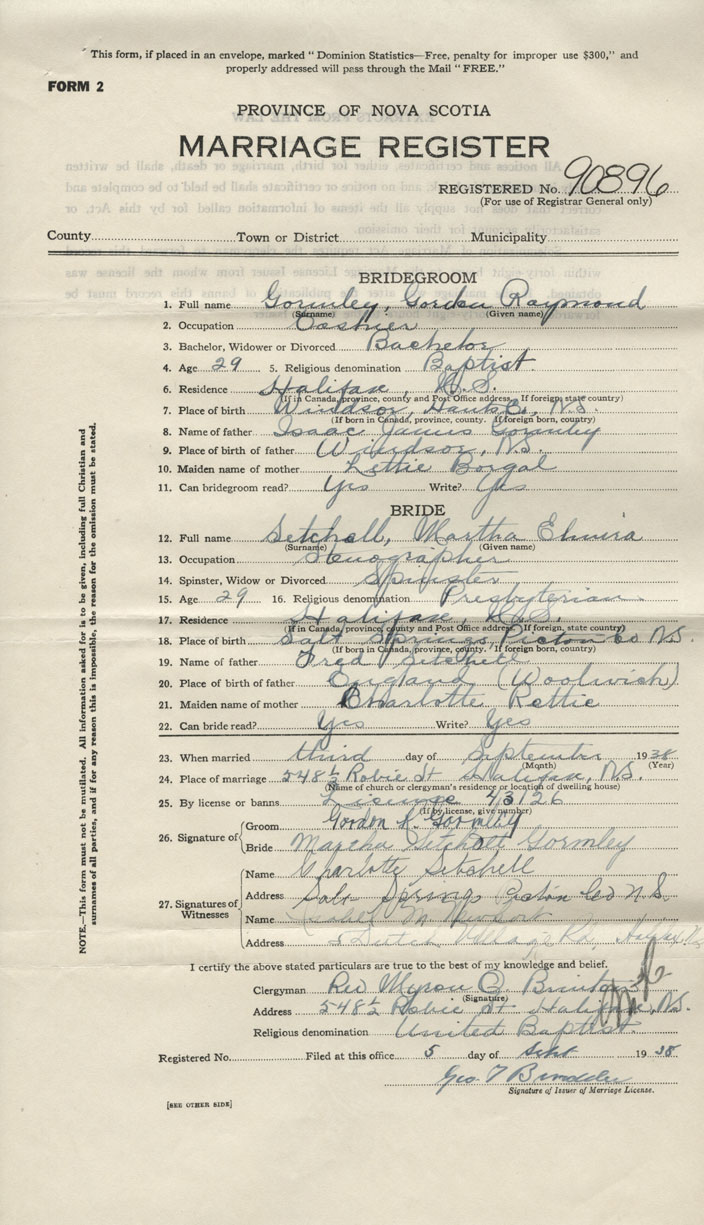 This form, if placed in an envelope, marked "Dominion Statistics—Free, penalty for improper use $300," and
properly addressed will pass through the Mail "FREE."
FORM 2
PROVINCE OF NOVA SCOTIA
MARRIAGE REGISTER
REGISTERED No. 90896
(For use of Registrar General only)
County Town or District Municipality
BRIDEGROOM
1. Full name Gormley, Gordon Raymond
(Surname) (Given name)
2. Occupation Cashier
3. Bachelor, Widower or Divorced Bachelor
4. Age 29 5. Religious denomination Baptist
6. Residence Halifax, N.S.
(If in Canada, province, county and Post Office address. If foreign, state country)
7. Place of birth Windsor, Hants Co., N.S.
(If born in Canada, province, county. If foreign born, country)
8. Name of father Isaac James Gormley
9. Place of father Windsor, N.S.
10. Maiden name of mother Lettie Borgal
11. Can bridegroom read? Yes Write? Yes
BRIDE
12. Full name Setchell, Martha Elmira
(Surname) (Given name)
13. Occupation Stenographer
14. Spinster, Widow or Divorced Spinster
15. Age 29 16. Religious denomination Presbyterian
17. Residence Halifax, N.S.
(If in Canada, province, county and Post Office address. If foreign, state country)
18. Place of birth Salt Springs, Pictou Co N.S.
(If born in Canada, province, county. If foreign born, country)
19. Name of father Fred Setchell
20. Place of birth of father England (Woolwich)
21. Maiden name of mother Charlotte Rettie
22. Can bride read? Yes Write? Yes
23. When married third day of September 1938
(Month) (Year)
24. Place of marriage 548½ Robie St Halifax, N.S.
(Name of church or clergyman's residence or location of dwelling house)
25. By license or banns License 43126
(If by license, give number)
26. Signature of Groom Gordon R. Gormley
Bride Martha Setchell Gormley
27. Signatures of Witnesses
Name Charlotte Setchell
Address Salt Springs Pictou Co N.S.
Name M.
Address Dutch Village Rd, Halifax
I certify the above stated particulars are true to the best of my knowledge and belief.
Clergyman Rev Myron O. Brinton
(Signature)
Address 548½ Robie St Halifax, N.S.
Religious denomination United Baptist
Registered No. Filed at this office 5 day of Sept 1938
Geo.
Signature of Issuer of Marriage License.
[SEE OTHER SIDE]
NOTE.—This form must not be mutilated. All information asked for is to be given, including full Christian and
surnames of all parties, and if for any reason this is impossible, the reason for the omission must be stated.